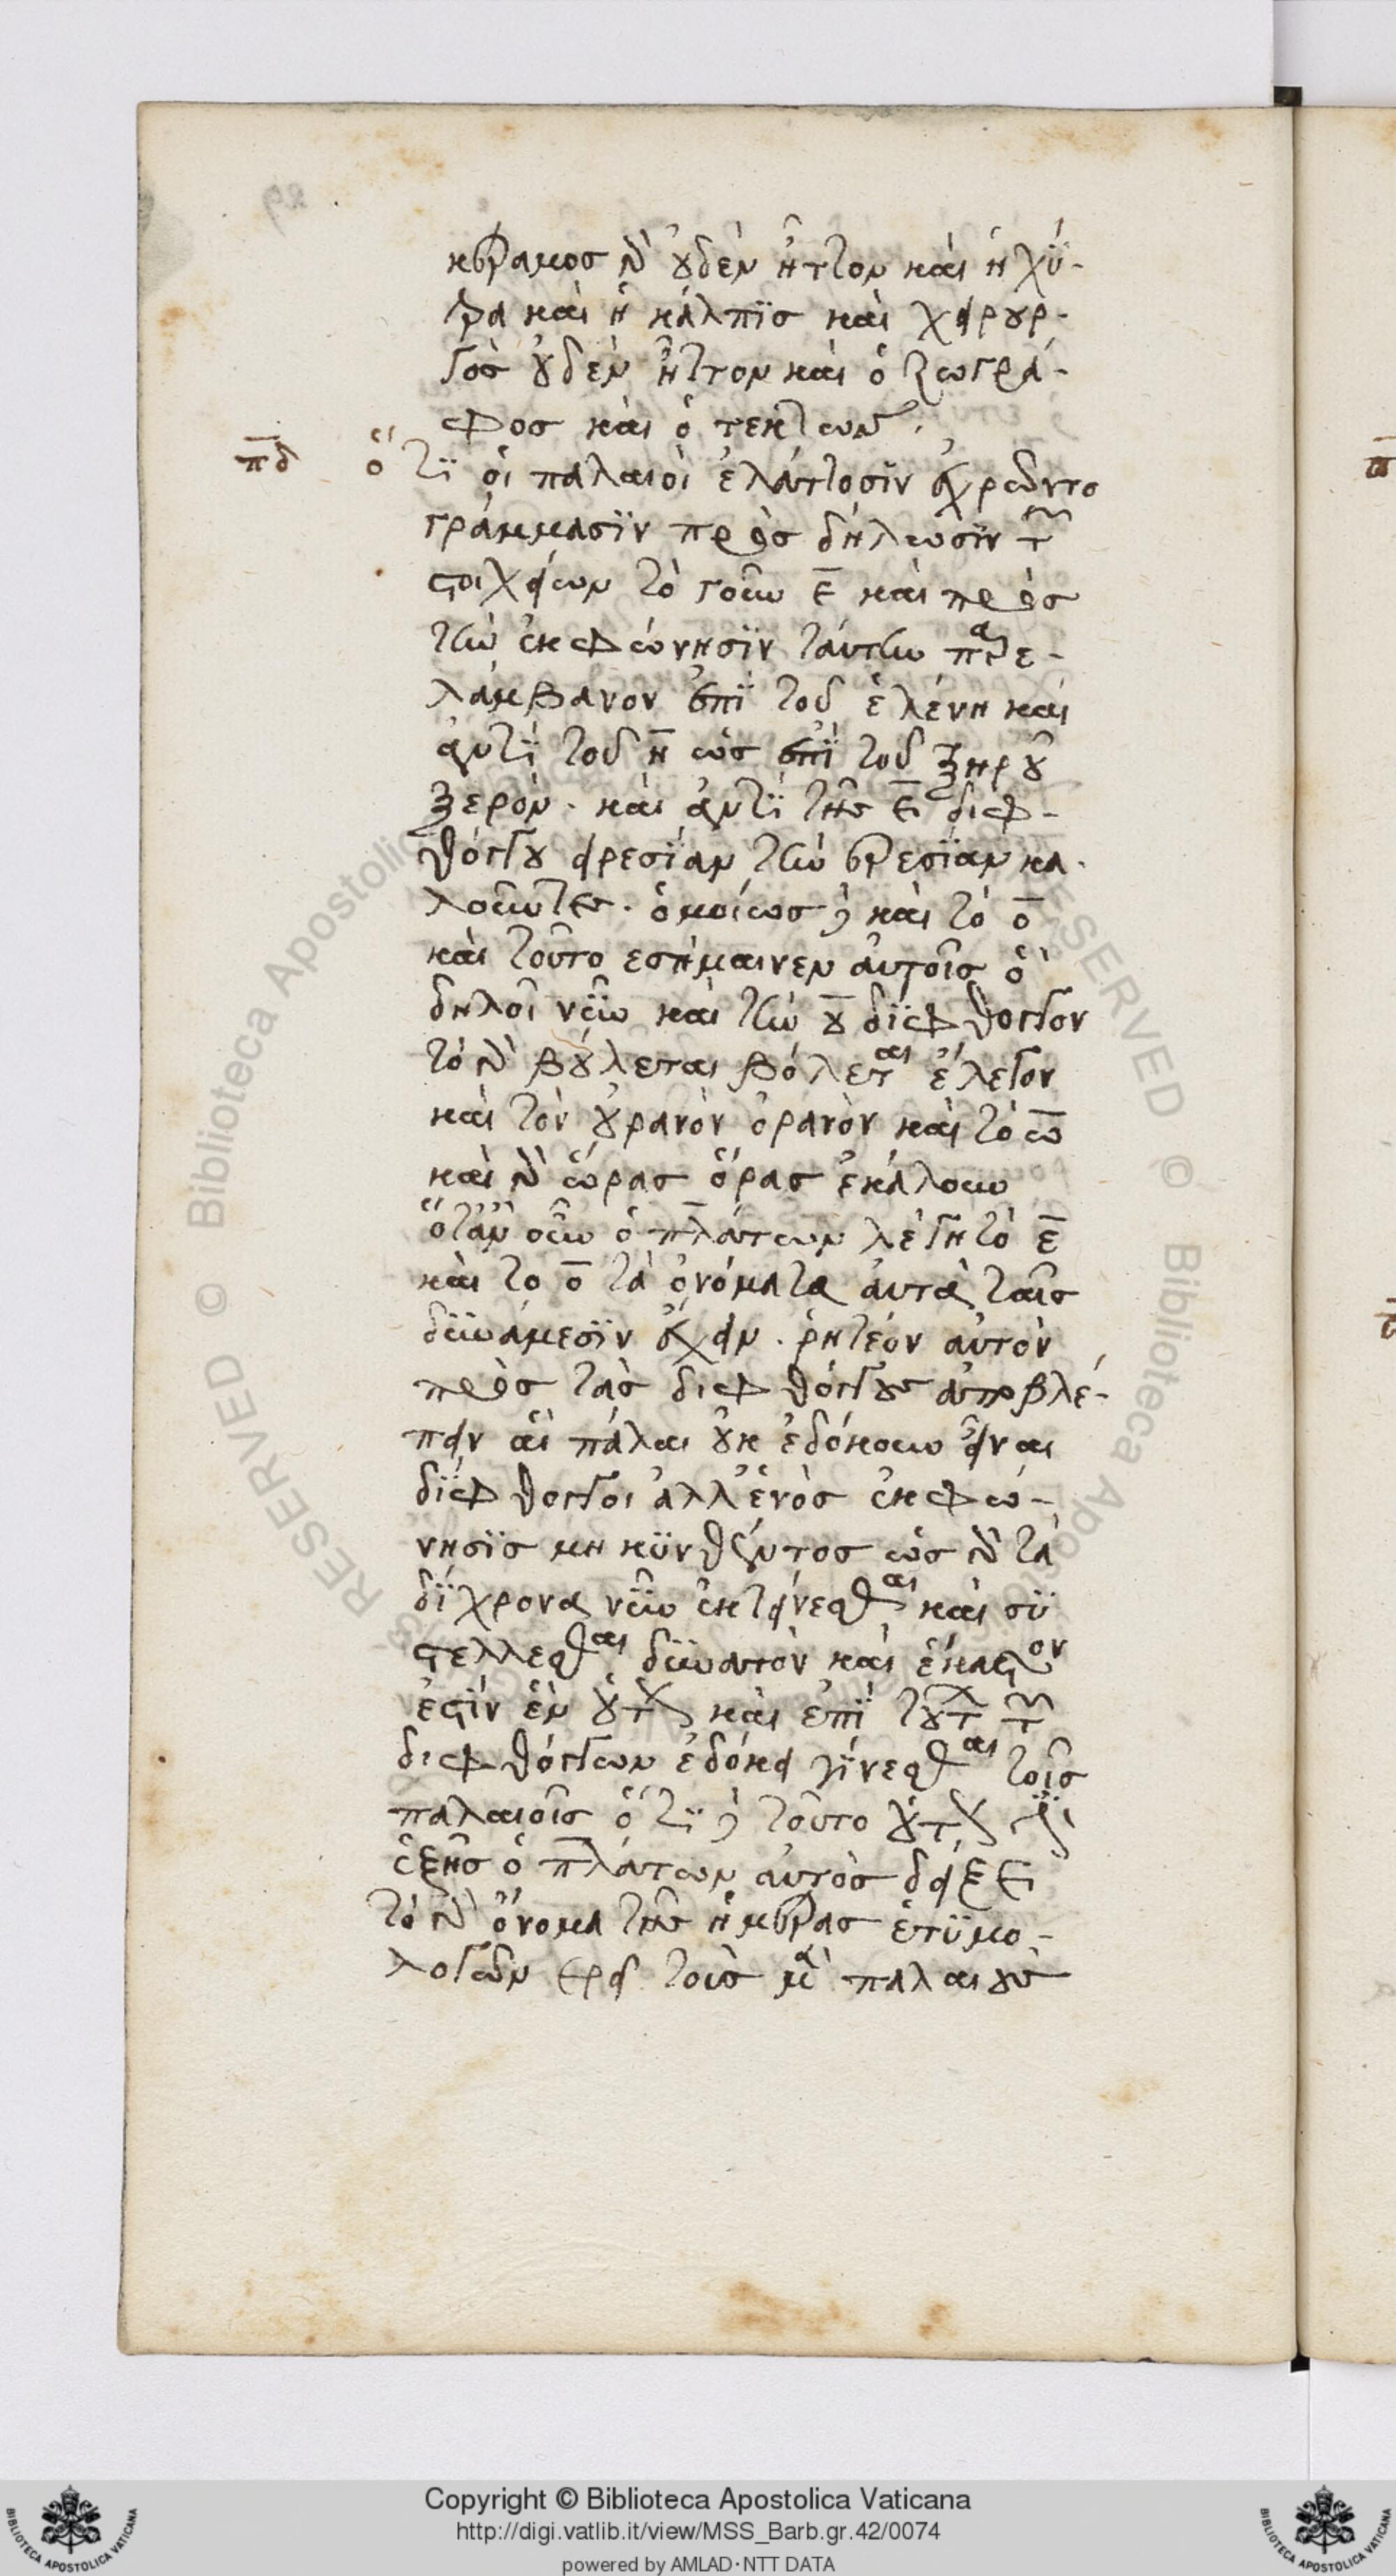 κέραμος δὲ οὐδὲν ἧττον καὶ ἡ χύ-
τρα καὶ ἡ κάλπις καὶ χειρουρ-
γὸς οὐδὲν ἧττον καὶ ὁ ζωγρά-
φος καὶ ὁ τέκτων.
πδ ὅτι οἱ παλαιοὶ ἐλάττοσιν ἐχρῶντο
γράμμασιν πρὸς δήλωσιν τῶν
στοιχείων τὸ γοῦν ε καὶ πρὸς
τὴν ἐκφώνησιν ταύτην παρε-
λάμβανον ἐπὶ τοῦ ἑλένη καὶ
ἀντὶ τοῦ η ὡς ἐπὶ τοῦ ξηροῦ
ξερὸν. καὶ ἀντὶ τῆς ει διφ-
θόγγου εἰρεσίαν τὴν ἐρεσίαν κα-
λοῦντες. ὁμοίως δὲ καὶ τὸ ο
καὶ τοῦτο ἐσήμαινεν αὐτοῖς ὃ
δηλοῖ νῦν καὶ τὴν ου δίφθογγον
τὸ δὲ βούλεται βόλεται ἔλεγον
καὶ τὸν οὐρανὸν ὀρανὸν καὶ τὸ ω
καὶ δὲ ὥρας ὅρας ἐκάλουν
ὅταν οὖν ὁ πλάτων λέγη τὸ ε
καὶ το ο τὰ ὀνόματα αὐτὰ ταῖς
δυνάμεσιν ἔχειν. ῥητέον αὐτὸν
πρὸς τὰς διφθόγγους ἀποβλέ-
πειν αἳ πάλαι οὐκ ἐδόκουν εἶναι
δίφθογγοι ἀλλ' ἑνὸς ἐκφώ-
νησις μηκυνθέντος ὡς δὲ τὰ
δίχρονα νῦν ἐκτείνεσθαι καὶ συ
στελλεσθαι δυνατὸν καὶ ἕκαστον
ἐστὶν ἓν οὕτω καὶ ἐπὶ τούτων τῶν
διφθόγγων ἐδόκει γίνεσθαι τοῖς
παλαιοῖς ὅτι δὲ τοῦτο οὕτως ἔχει
ἑξῆς ὁ πλάτων αὐτὸς δείξει
τὸ δὲ ὄνομα τῆς ἡμέρας ἐτυμο-
λογῶν ἐρεῖ τοὺς μὲν παλαιοὺς
Copyright © Biblioteca Apostolica Vaticana
http://digi.vatlib.it/view/MSS_Barb.gr.42/0074
powered by AMLAD·NTT DATA